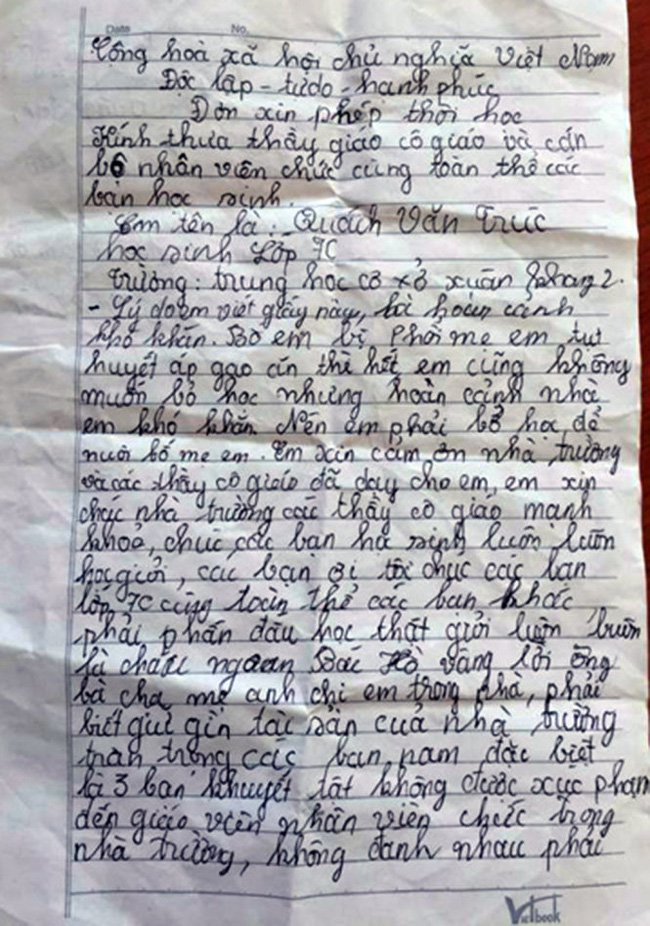 Date No.
Cộng hoà xã hội chủ nghĩa Việt Nam
Độc lập - tự do - hạnh phúc
Đơn xin phép thôi học
Kính thưa thầy giáo cô giáo và cán
bộ nhân viên chức cùng toàn thể các
bạn học sinh.
Em tên là: Quách Văn Trúc
học sinh Lớp 7C
Trường: trung học cơ xở xuân khang 2.
- Lý do em viết giấy này, là hoàn cảnh
khó khăn. Bố em bị phổi mẹ em tụt
huyết áp gạo ăn thì hết em cũng không
muốn bỏ học nhưng hoàn cảnh nhà
em khó khăn. Nên em phải bỏ học để
nuôi bố mẹ em. Em xin cảm ơn nhà trường
và các thầy cô giáo đã dạy cho em, em xin
chúc nhà trường các thầy cô giáo mạnh
khoẻ, chúc các bạn học sinh luôn luôn
học giỏi, các bạn ơi tôi chúc các bạn
lớp 7C cùng toàn thể các bạn khác
phải phấn đấu học thật giỏi luôn luôn
là cháu ngoan Bác Hồ vâng lời ông
bà cha mẹ anh chị em trong nhà, phải
biết giữ gìn tài sản của nhà trường
trân trọng các bạn nam đặc biệt
là 3 bạn khuyết tật không được xúc phạm
đến giáo viên nhân viên chức trong
nhà trường, không đánh nhau phải
Vietbook